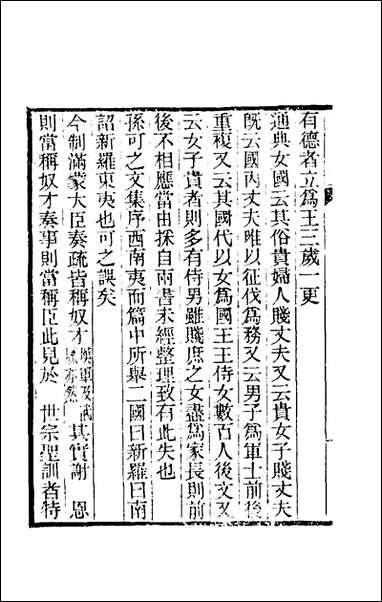 有德者立為王三歲一更
通典女國云其俗貴婦人賤丈夫又云貴女子賤丈夫
既云國內丈夫唯以征伐為務又云男子為軍士前後
重複又云其國代以女為國王王侍女數百人後文又
云女子貴者則多有侍男雖賤庶之女盡為家長則前
後不相應當由採自兩書未經整理致有此失也
孫可之文集序西南夷而篇中所舉二國曰新羅曰南
詔新羅東夷也可之誤矣
今制滿蒙大臣奏疏皆稱奴才漢軍及武臣亦然其實謝 恩
則當稱奴才奏事則當稱臣此見於 世宗聖訓者特